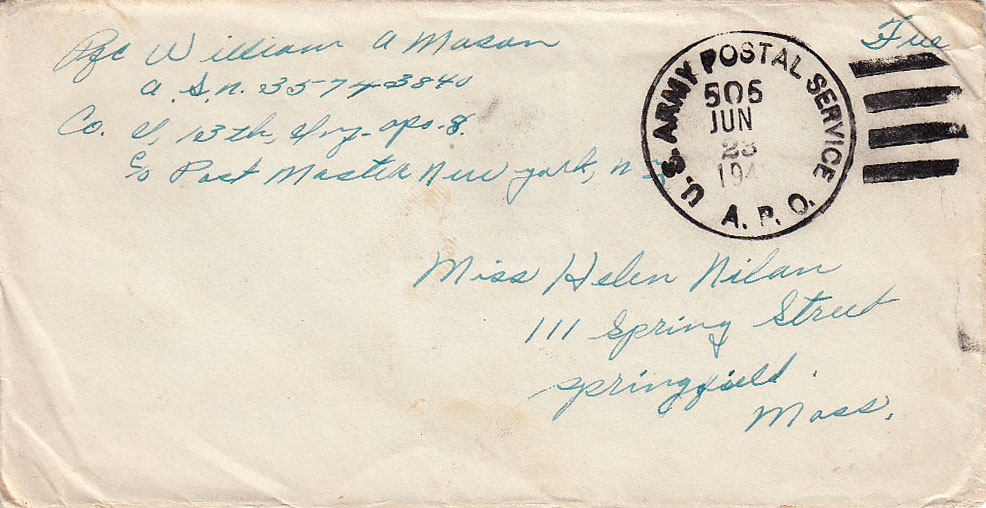 Pfc William A Mason
A.S.N. 35743840
Co. I, 13th, Inf. apo. 8.
c/o Post Master New York, N.Y.
Free
U.S. ARMY POSTAL SERVICE
505
JUN
23
194
A.P.O.
Miss Helen Nilan
111 Spring Street
Springfield.
Mass.